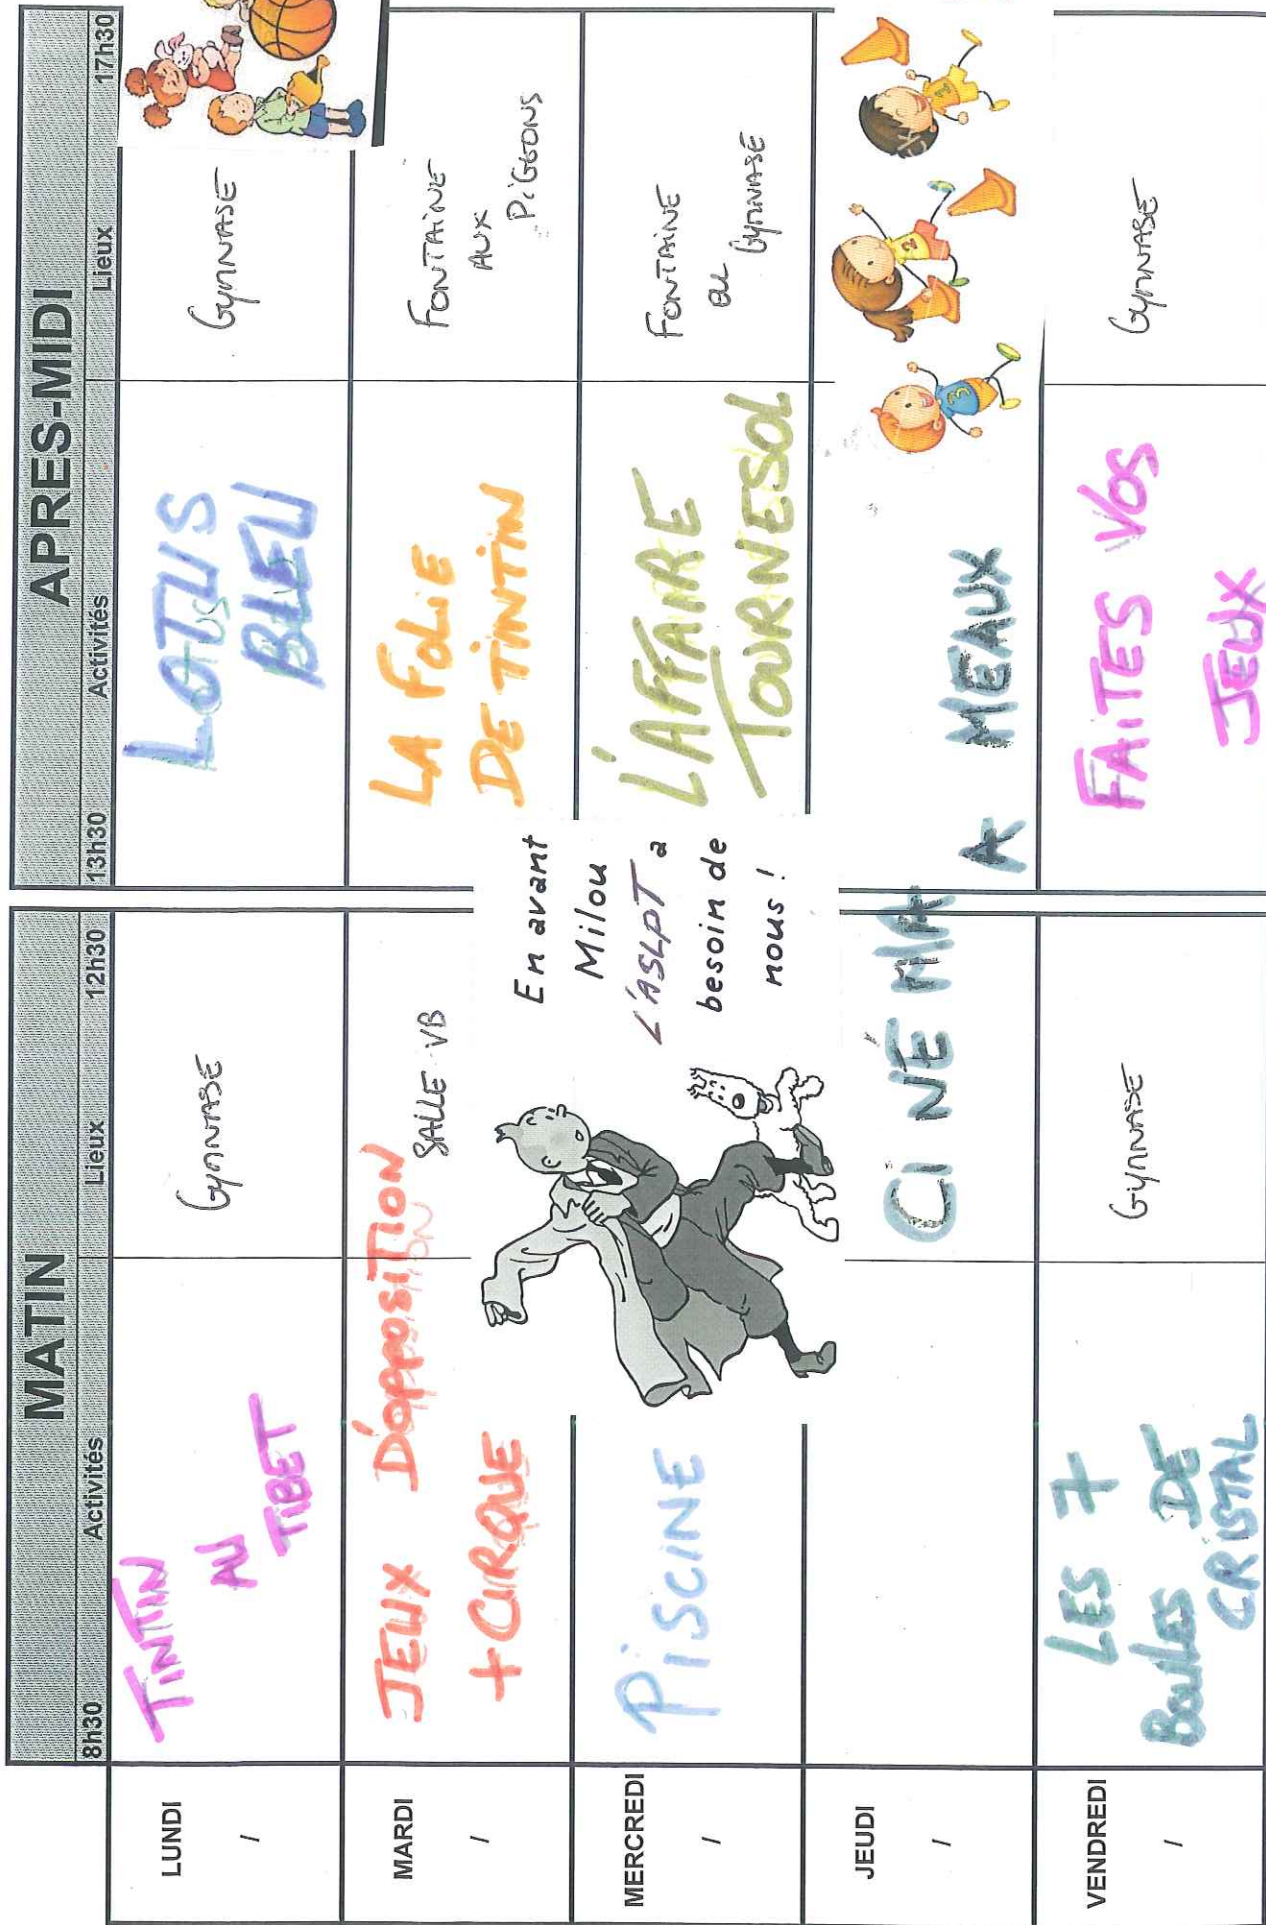 MATIN
APRES-MIDI
8h30 Activités Lieux 12h30
13h30 Activités Lieux 17h30
LUNDI
/
TINTIN
AU
TIBET
GYMNASE
LOTUS
BLEU
GYMNASE
MARDI
/
JEUX D'OPPOSITION
+ CIRQUE
SALLE VB
LA FOLIE
DE TINTIN
FONTAINE
AUX
PIGEONS
MERCREDI
/
PISCINE
En avant
Milou
L'ASLPT a
besoin de
nous !
L'AFFAIRE
TOURNESOL
FONTAINE
OU
GYMNASE
JEUDI
/
CINÉMA A MEAUX
2
3
VENDREDI
/
LES 7
BOULES DE
CRISTAL
GYMNASE
FAITES VOS
JEUX
GYMNASE